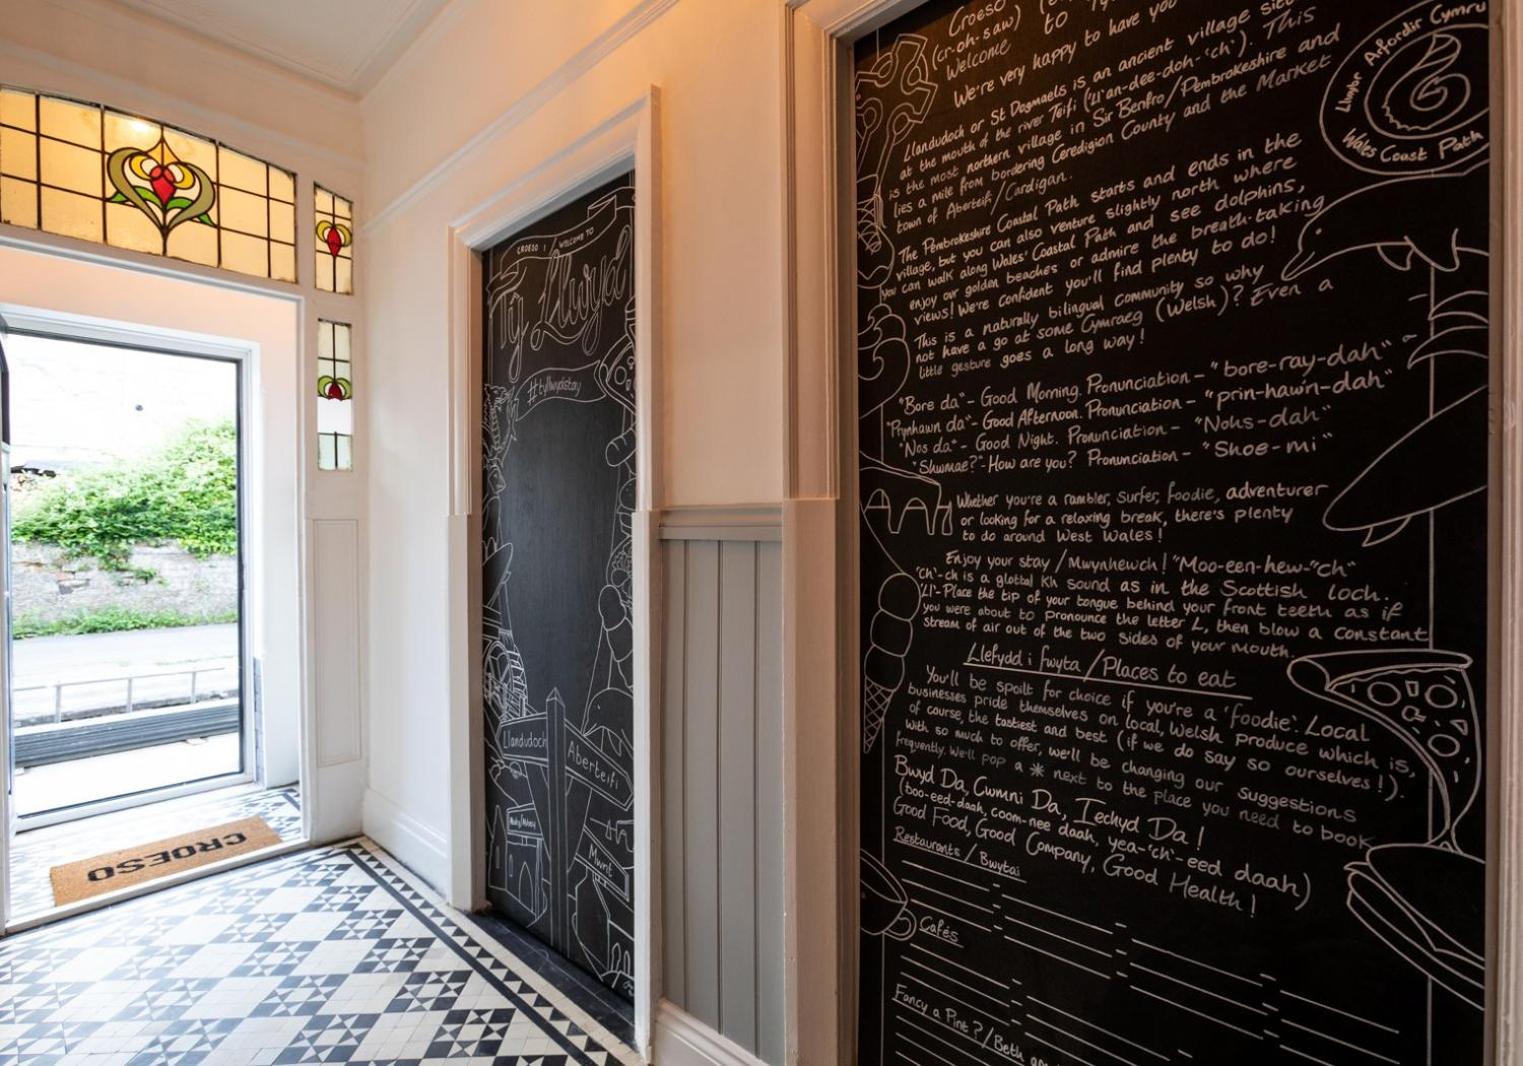 CROESO
CROESO I WELCOME TO
Ty Llwyd
#tyllwydstay
Llandudoch
Aberteifi
Mwnt
Croeso
(cr-oh-saw)
Welcome to
We're very happy to have you
Llandudoch or St Dogmaels is an ancient village
at the mouth of the river Teifi ('Ll'an-dee-doh-'ch'). This
is the most northern village in Sir Benfro/Pembrokeshire and
lies a mile from bordering Ceredigion County and the Market
town of Aberteifi/Cardigan.
The Pembrokeshire Coastal Path starts and ends in the
village, but you can also venture slightly north where
you can walk along Wales' Coastal Path and see dolphins,
enjoy our golden beaches or admire the breath-taking
views! We're confident you'll find plenty to do!
This is a naturally bilingual community so why
not have a go at some Cymraeg (Welsh)? Even a
little gesture goes a long way!
"Bore da"- Good Morning. Pronunciation - "bore-ray-dah"
"Prynhawn da"- Good Afternoon. Pronunciation - "prin-hawn-dah"
"Nos da"- Good Night. Pronunciation - "Nohs-dah"
"Shwmae?"- How are you? Pronunciation - "Shoe-mi"
Whether you're a rambler, surfer, foodie, adventurer
or looking for a relaxing break, there's plenty
to do around West Wales!
Enjoy your stay / Mwynhewch! "Moo-een-hew-"ch"
'ch'-ch is a glottal Kh sound as in the Scottish loch.
'Ll'- Place the tip of your tongue behind your front teeth as if
you were about to pronounce the letter L, then blow a constant
stream of air out of the two sides of your mouth.
Llefydd i fwyta / Places to eat
You'll be spoilt for choice if you're a 'foodie'. Local
businesses pride themselves on local, Welsh produce which is,
of course, the tastiest and best (if we do say so ourselves!).
With so much to offer, we'll be changing our suggestions
frequently. We'll pop a * next to the place you need to book
Bwyd Da, Cwmni Da, Iechyd Da!
(boo-eed-daah, coom-nee daah, yea-'ch'-eed daah)
Good Food, Good Company, Good Health!
Restaurants / Bwytai
Cafés
Fancy a Pint? / Beth am
Llwybr Arfordir Cymru
Wales Coast Path